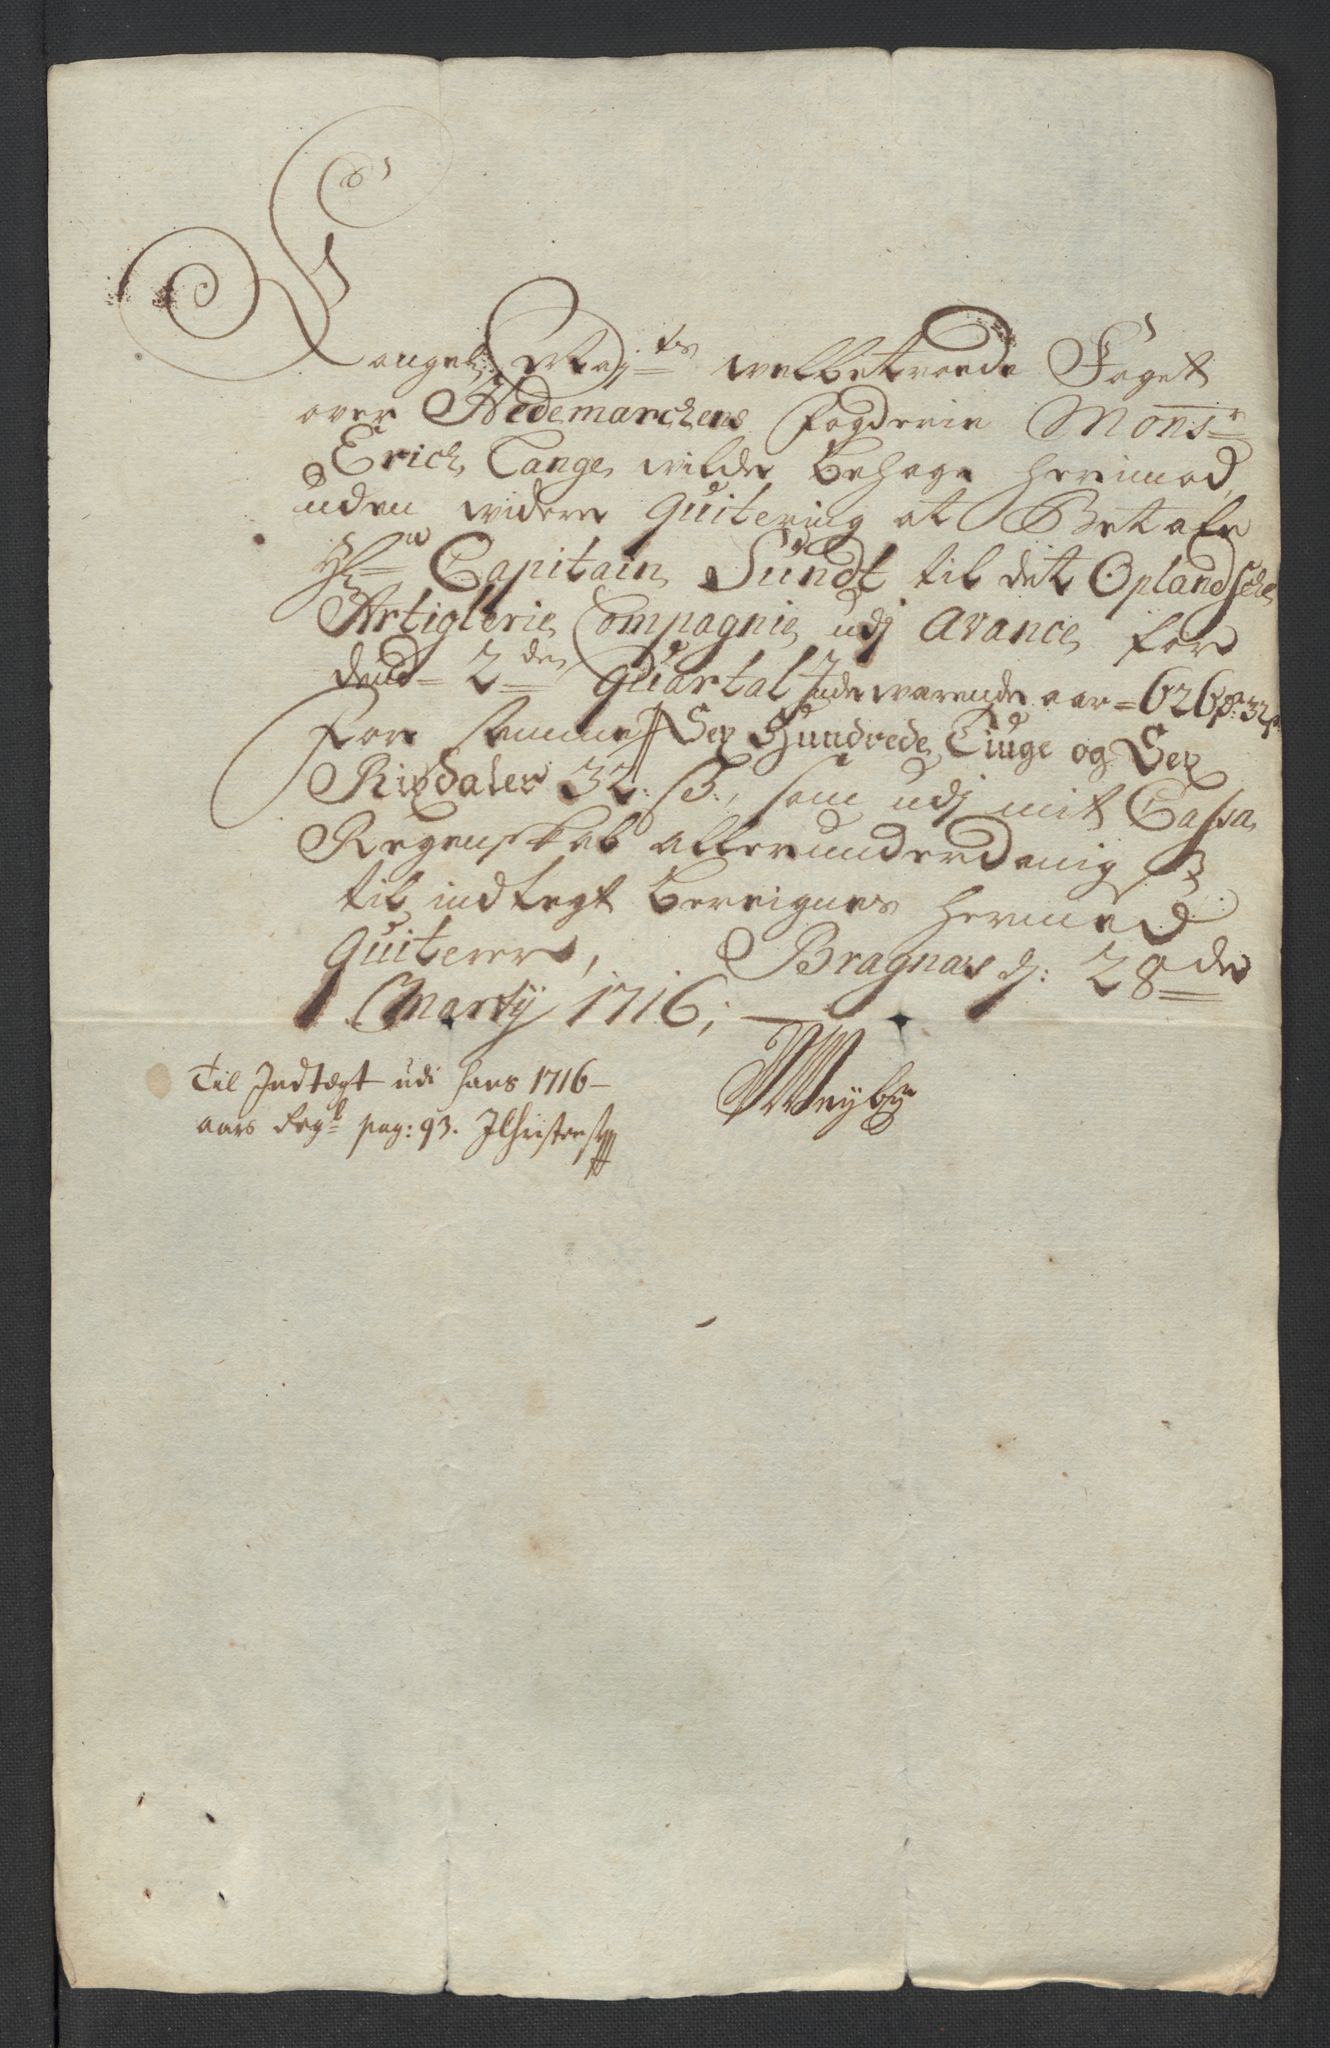 Kongel: Maj:ts welbetroede Foget
over Hedemarchens fogderie Monsr
Erich Lange wilde behage herimod,
uden widere quitering at Betale
Hr Capitain Sundt til det Oplandsche
Artiglerie Compagnie udj Avance for
dend 2den Quartal inde warende aar = 626 rd: 32 s
for summa Sex Hundrede Tiuge og Sex
Rixdaler 32: s:, som udj mit Cassa
Regenskab allerunderdanigst
til indtegt bereignes hermed
quiterer, Bragnæs d: 28de
Marty 1716;
Meyer
Til Indtægt udi hans 1716
aars Regsk pag: 93. JChristensen